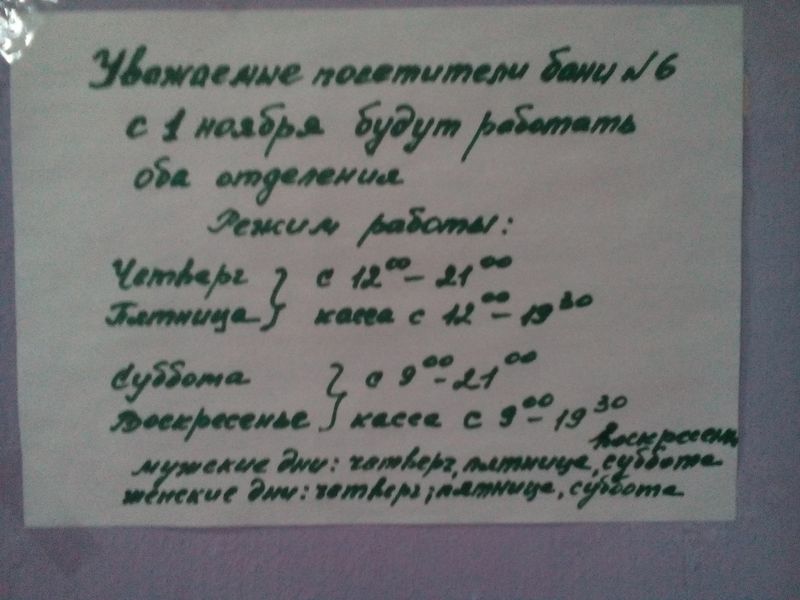 Уважаемые посетители бани №6
с 1 ноября будут работать
оба отделения
Режим работы:
Четверг } с 12⁰⁰ - 21⁰⁰
Пятница } касса с 12⁰⁰ - 19³⁰
Суббота } с 9⁰⁰ - 21⁰⁰
Воскресенье } касса с 9⁰⁰ - 19³⁰
воскресень
мужские дни: четверг, пятница, суббота
женские дни: четверг, пятница, суббота